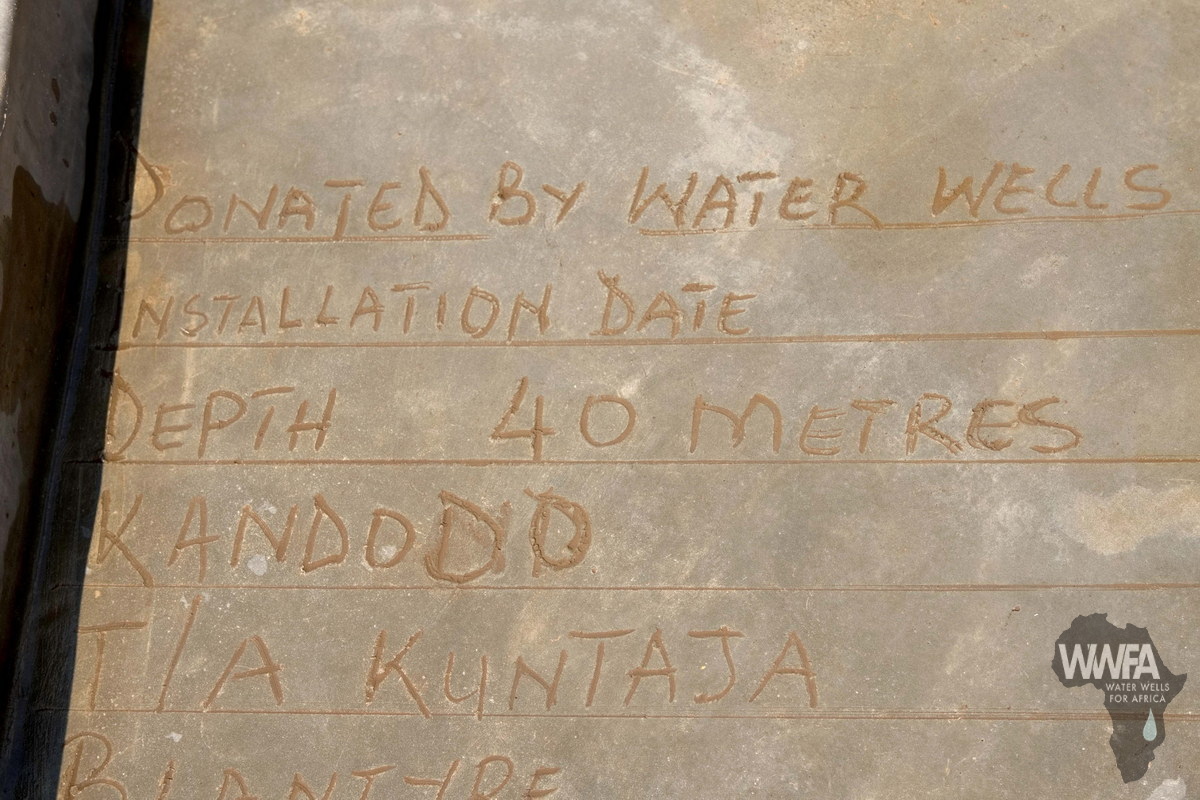 DONATED BY WATER WELLS
INSTALLATION DATE
DEPTH 40 METRES
KANDODO
T/A KUNTAJA
BLANTYRE
WWFA
WATER WELLS
FOR AFRICA